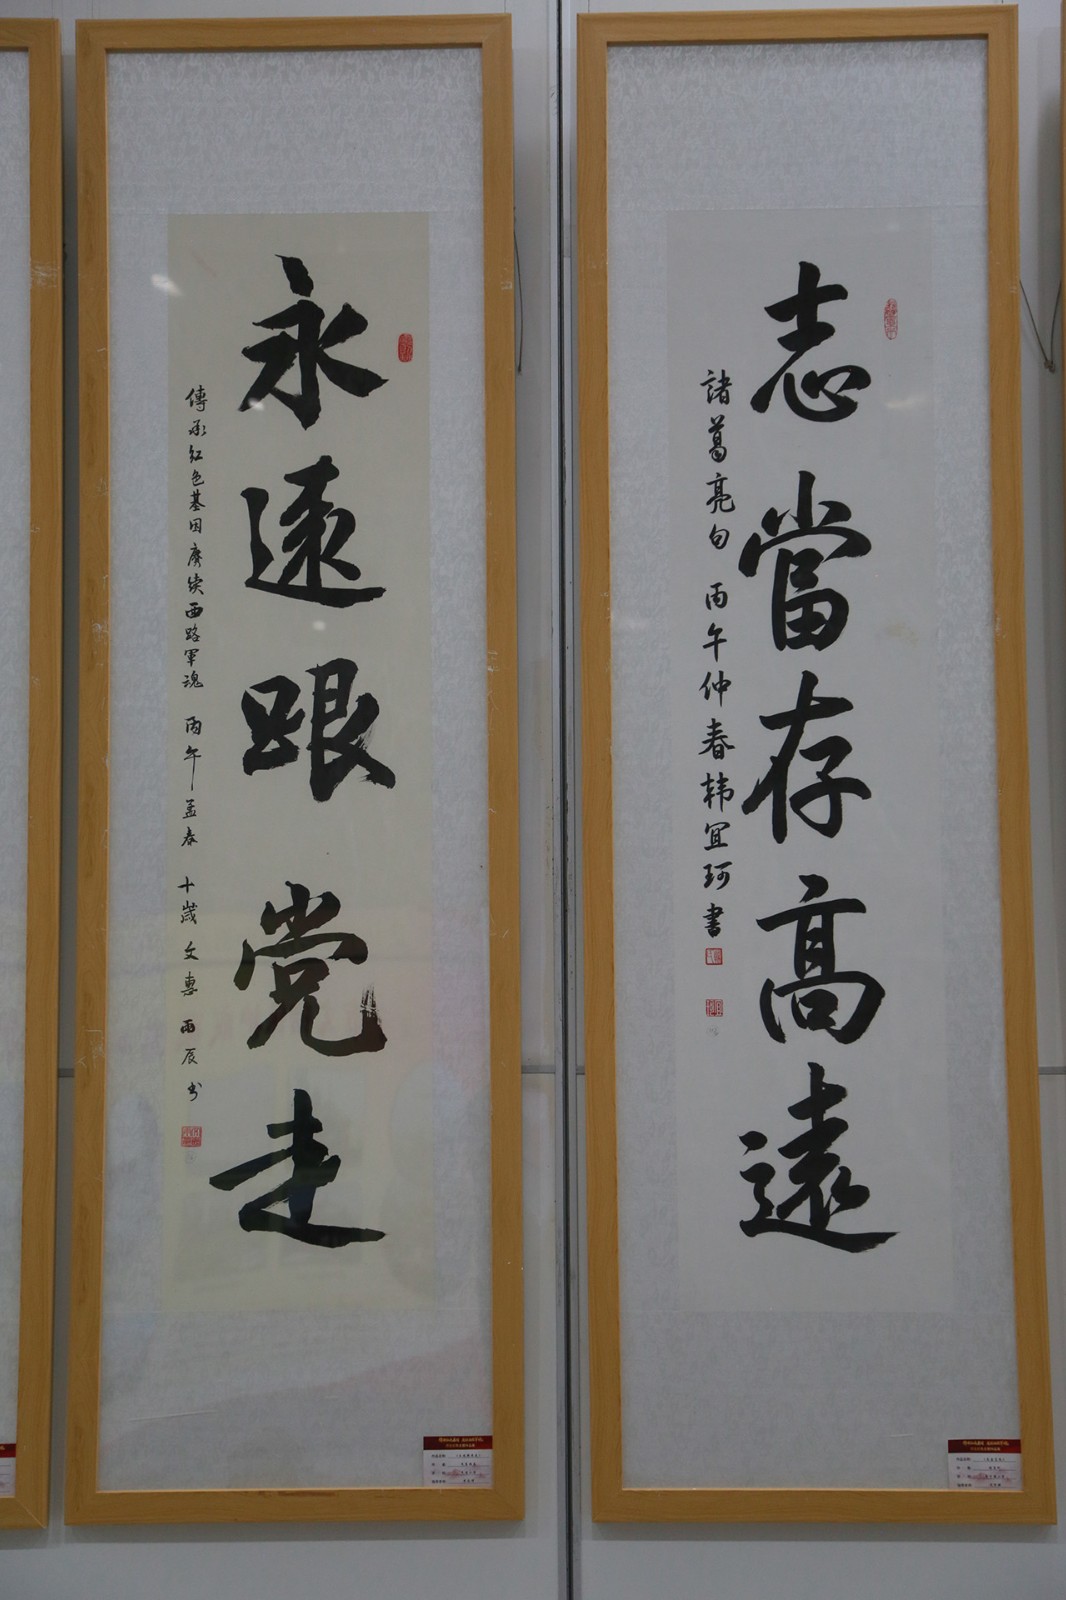 志當存高遠
諸葛亮句 丙午仲春韩宜珂書
永遠跟党走
傳承红色基因赓续西路軍魂 丙午孟春 十歲文惠雨辰书